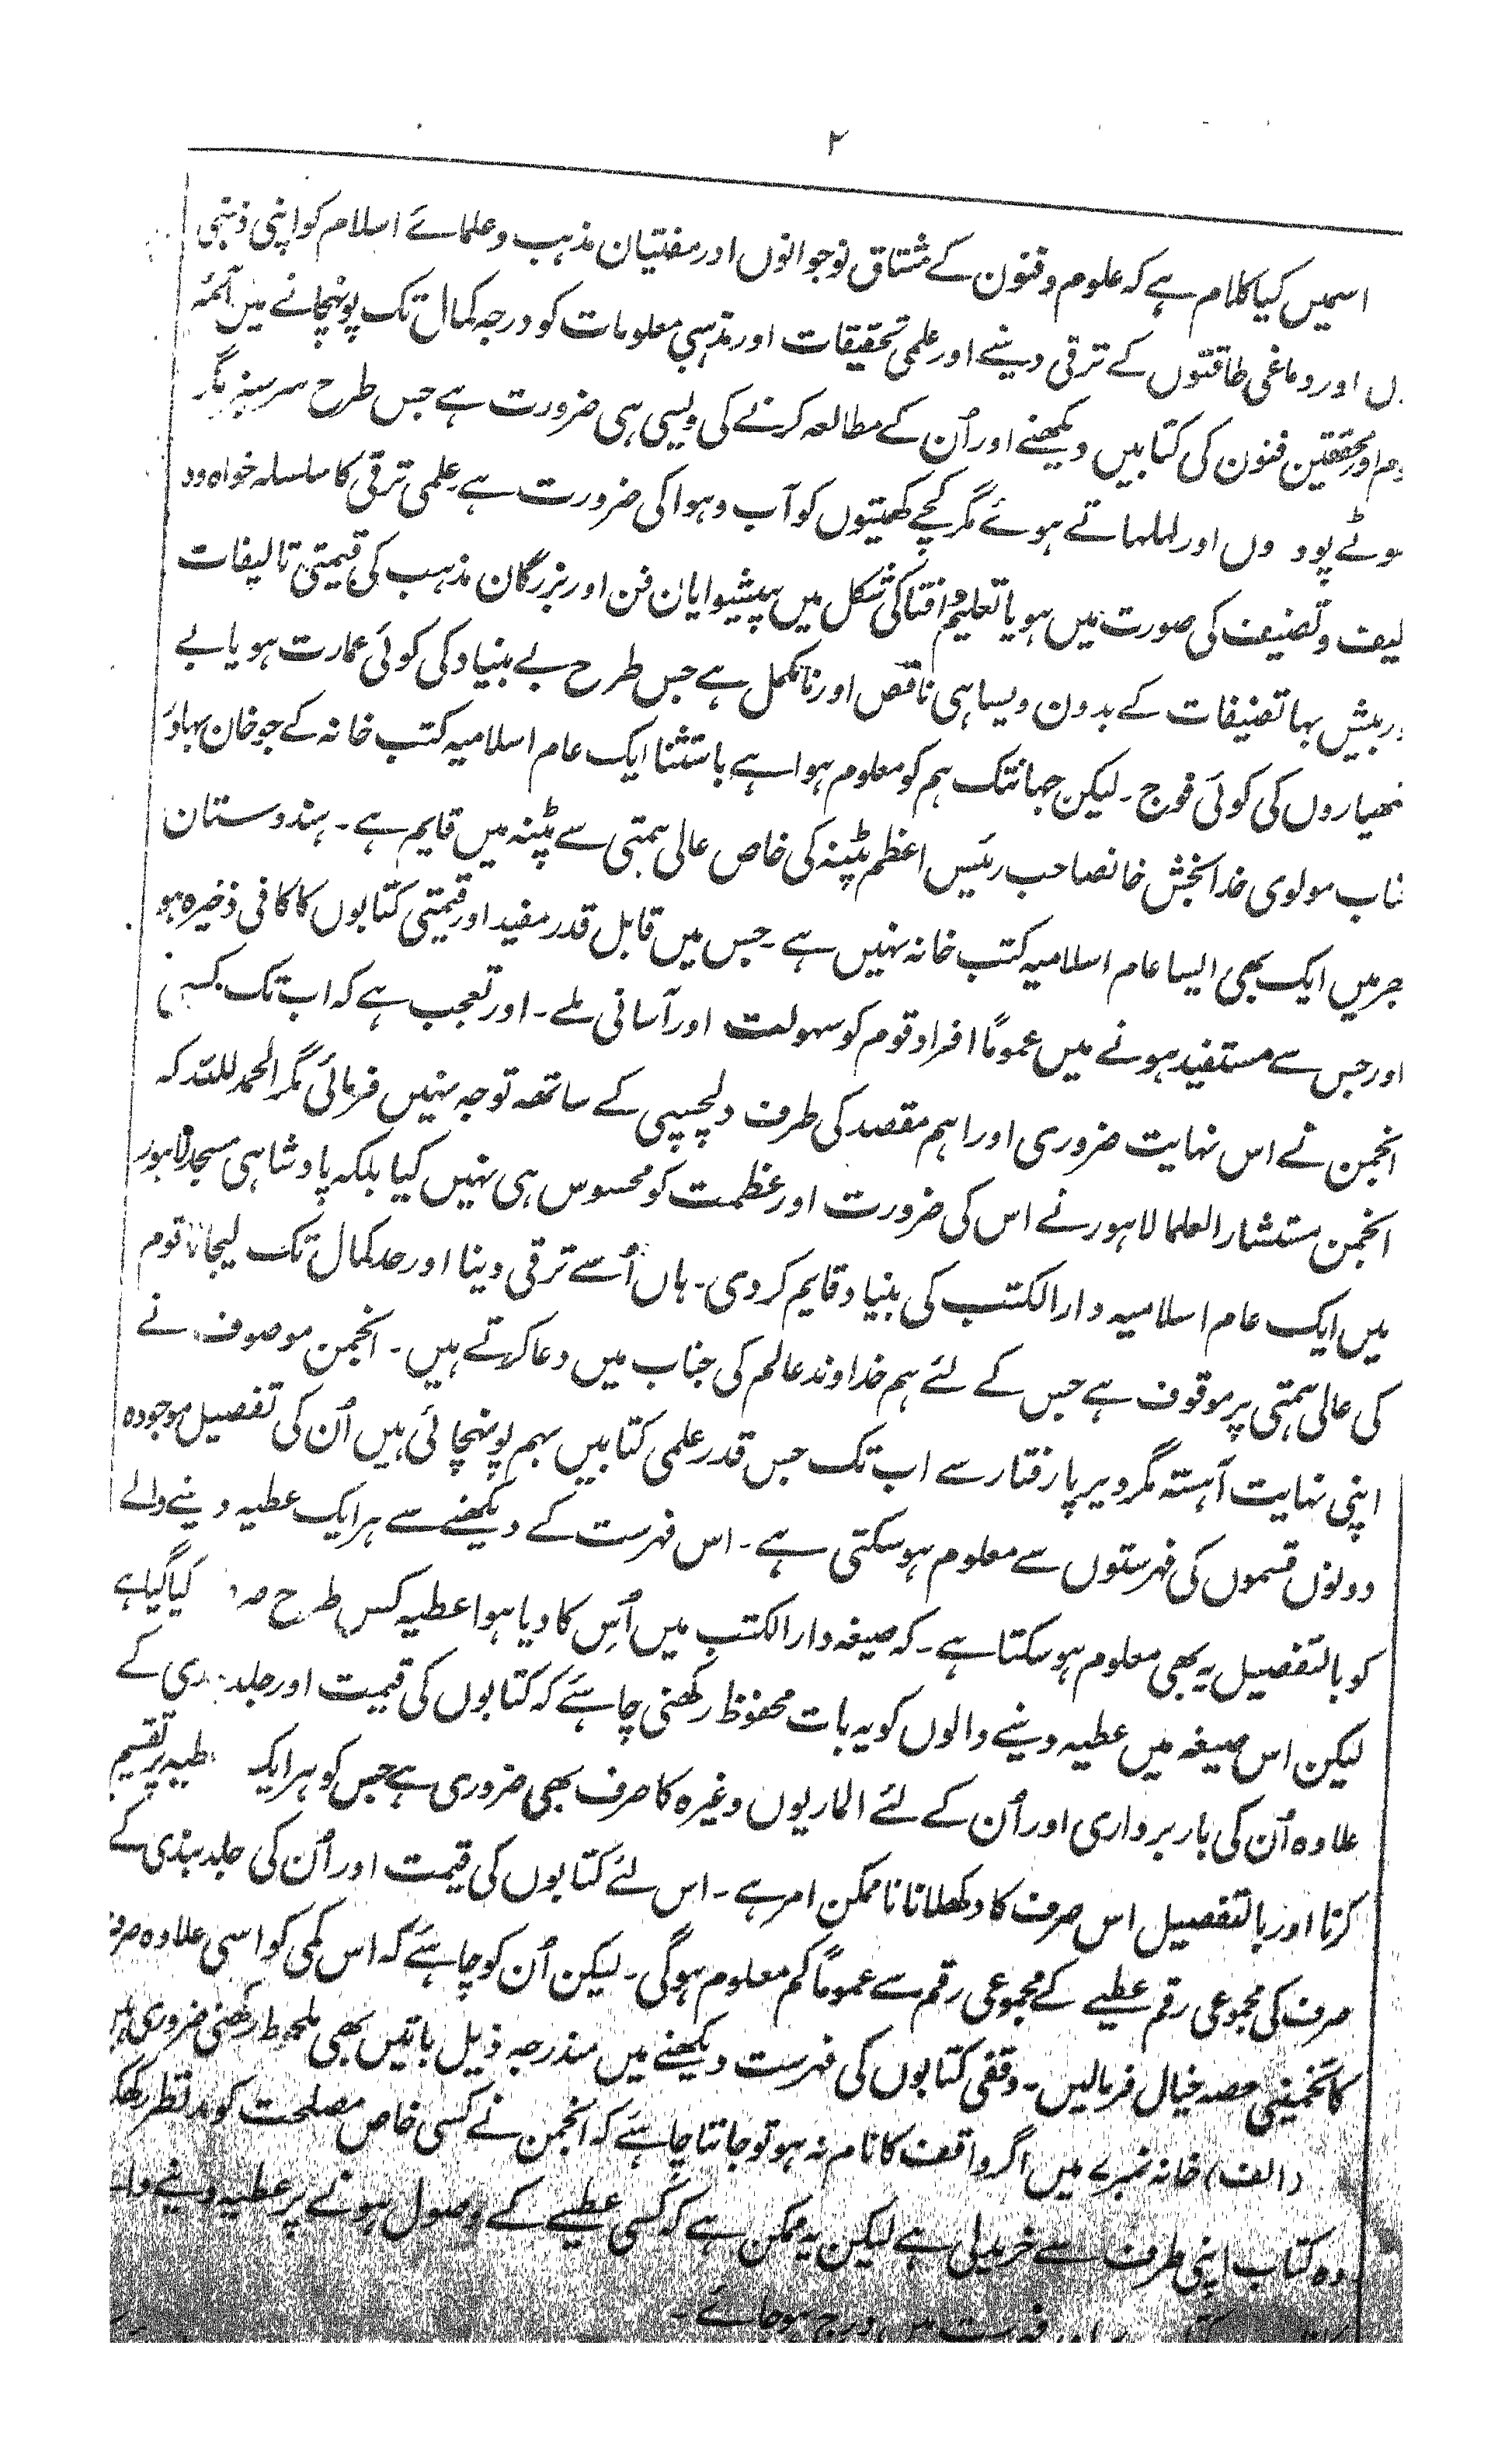 ۲
اسمیں کیا کلام ہے کہ علوم و فنون کے مشتاق نوجوانوں اور مفتیان مذہب و علمائے اسلام کو اپنی ذہنی
اور دماغی طاقتوں کے ترقی دینے اور علمی تحقیقات اور مذہبی معلومات کو درجہ کمال تک پونہچانے میں آئمہ
اور محققین فنون کی کتابیں دیکھنے اور اُن کے مطالعہ کرنے کی ویسی ہی ضرورت ہے جس طرح سرسبز مگر
پودوں اور لہلہاتے ہوئے مگر کچے کھیتوں کو آب و ہوا کی ضرورت ہے۔ علمی ترقی کا سلسلہ خواہ وہ
و تصنیف کی صورت میں ہو یا تعلیم و افتا کی شکل میں پیشوایان فن اور بزرگان مذہب کی قیمتی تالیفات
بیش بہا تصنیفات کے بدون ویسا ہی ناقص اور نامکمل ہے جس طرح بے بنیاد کی کوئی عمارت ہو یا بے
کی کوئی فوج۔ لیکن جہانتک ہم کو معلوم ہوا ہے باستثنا ایک عام اسلامیہ کتب خانہ کے جو خان بہادر
مولوی خدا بخش خانصاحب رئیس اعظم پٹنہ کی خاص عالی ہمتی سے پٹنہ میں قایم ہے۔ ہندوستان
میں ایک بھی ایسا عام اسلامیہ کتب خانہ نہیں ہے۔ جس میں قابل قدر مفید اور قیمتی کتابوں کا کافی ذخیرہ ہو
اور جس سے مستفید ہونے میں عموماً افراد قوم کو سہولت اور آسانی ملے۔ اور تعجب ہے کہ اب تک کسی
انجمن نے اس نہایت ضروری اور اہم مقصد کی طرف دلچسپی کے ساتھ توجہ نہیں فرمائی مگر الحمد للہ کہ
انجمن مستشار العلما لاہور نے اس کی ضرورت اور عظمت کو محسوس ہی نہیں کیا بلکہ پادشاہی مسجد لاہور
میں ایک عام اسلامیہ دار الکتب کی بنیاد قایم کر دی۔ ہاں اُسے ترقی دینا اور حد کمال تک لیجانا قوم
کی عالی ہمتی پر موقوف ہے جس کے لئے ہم خداوند عالم کی جناب میں دعا کرتے ہیں۔ انجمن موصوف نے
اپنی نہایت آہستہ مگر دیرپا رفتار سے اب تک جس قدر علمی کتابیں بہم پونہچائی ہیں اُن کی تفصیل موجودہ
دونوں قسموں کی فہرستوں سے معلوم ہو سکتی ہے۔ اس فہرست کے دیکھنے سے ہر ایک عطیہ دینے والے
کو بالتفصیل یہ بھی معلوم ہو سکتا ہے۔ کہ صیغہ دار الکتب میں اُس کا دیا ہوا عطیہ کس طرح کیا گیا ہے
لیکن اس صیغہ میں عطیہ دینے والوں کو یہ بات محفوظ رکھنی چاہئے کہ کتابوں کی قیمت اور جلد بندی کے
علاوہ اُن کی باربرداری اور اُن کے لئے الماریوں وغیرہ کا صرف بھی ضروری ہے جس کو ہر ایک عطیہ پر تقسیم
کرنا اور بالتفصیل اس صرف کا دکھلانا ناممکن امر ہے۔ اس لئے کتابوں کی قیمت اور اُن کی جلد بندی کے
صرف کی مجموعی رقم عطیے کے مجموعی رقم سے عموماً کم معلوم ہو گی۔ لیکن اُن کو چاہئے کہ اس کمی کو اسی علاوہ صرف
کا تخمینی حصہ خیال فرمالیں۔ وقفی کتابوں کی فہرست دیکھنے میں مندرجہ ذیل باتیں بھی ملحوظ رکھنی ضروری ہیں
(الف) خانہ نمبر ۷ میں اگر واقف کا نام نہ ہو تو جاننا چاہئے کہ انجمن نے کسی خاص مصلحت کو مد نظر رکھکر
وہ کتاب اپنی طرف سے خرید لی ہے لیکن یہ ممکن ہے کہ کسی عطیے کے وصول ہونے پر عطیہ دینے والے
فہرست میں درج ہو جائے۔